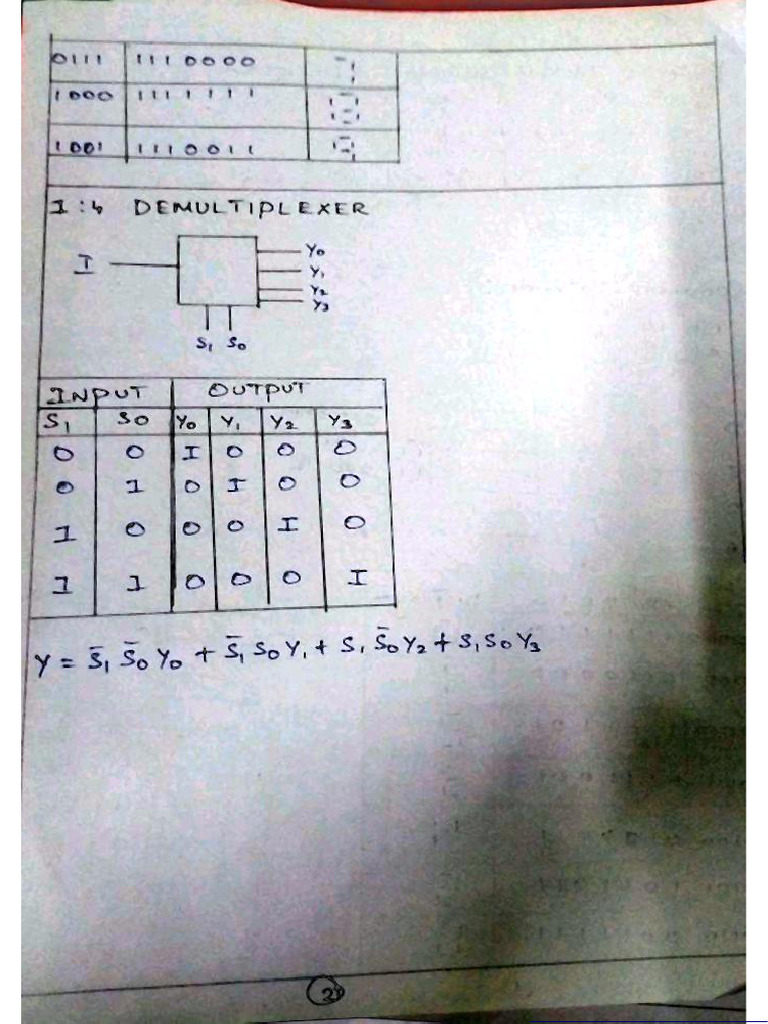 0111 1110000
1000 1111111
1001 1110011
1:4 DEMULTIPLEXER
I
Y0
Y1
Y2
Y3
S1 S0
INPUT OUTPUT
S1 S0 Y0 Y1 Y2 Y3
0 0 I 0 0 0
0 1 0 I 0 0
1 0 0 0 I 0
1 1 0 0 0 I
Y = S̄1 S̄0 Y0 + S̄1 S0 Y1 + S1 S̄0 Y2 + S1 S0 Y3